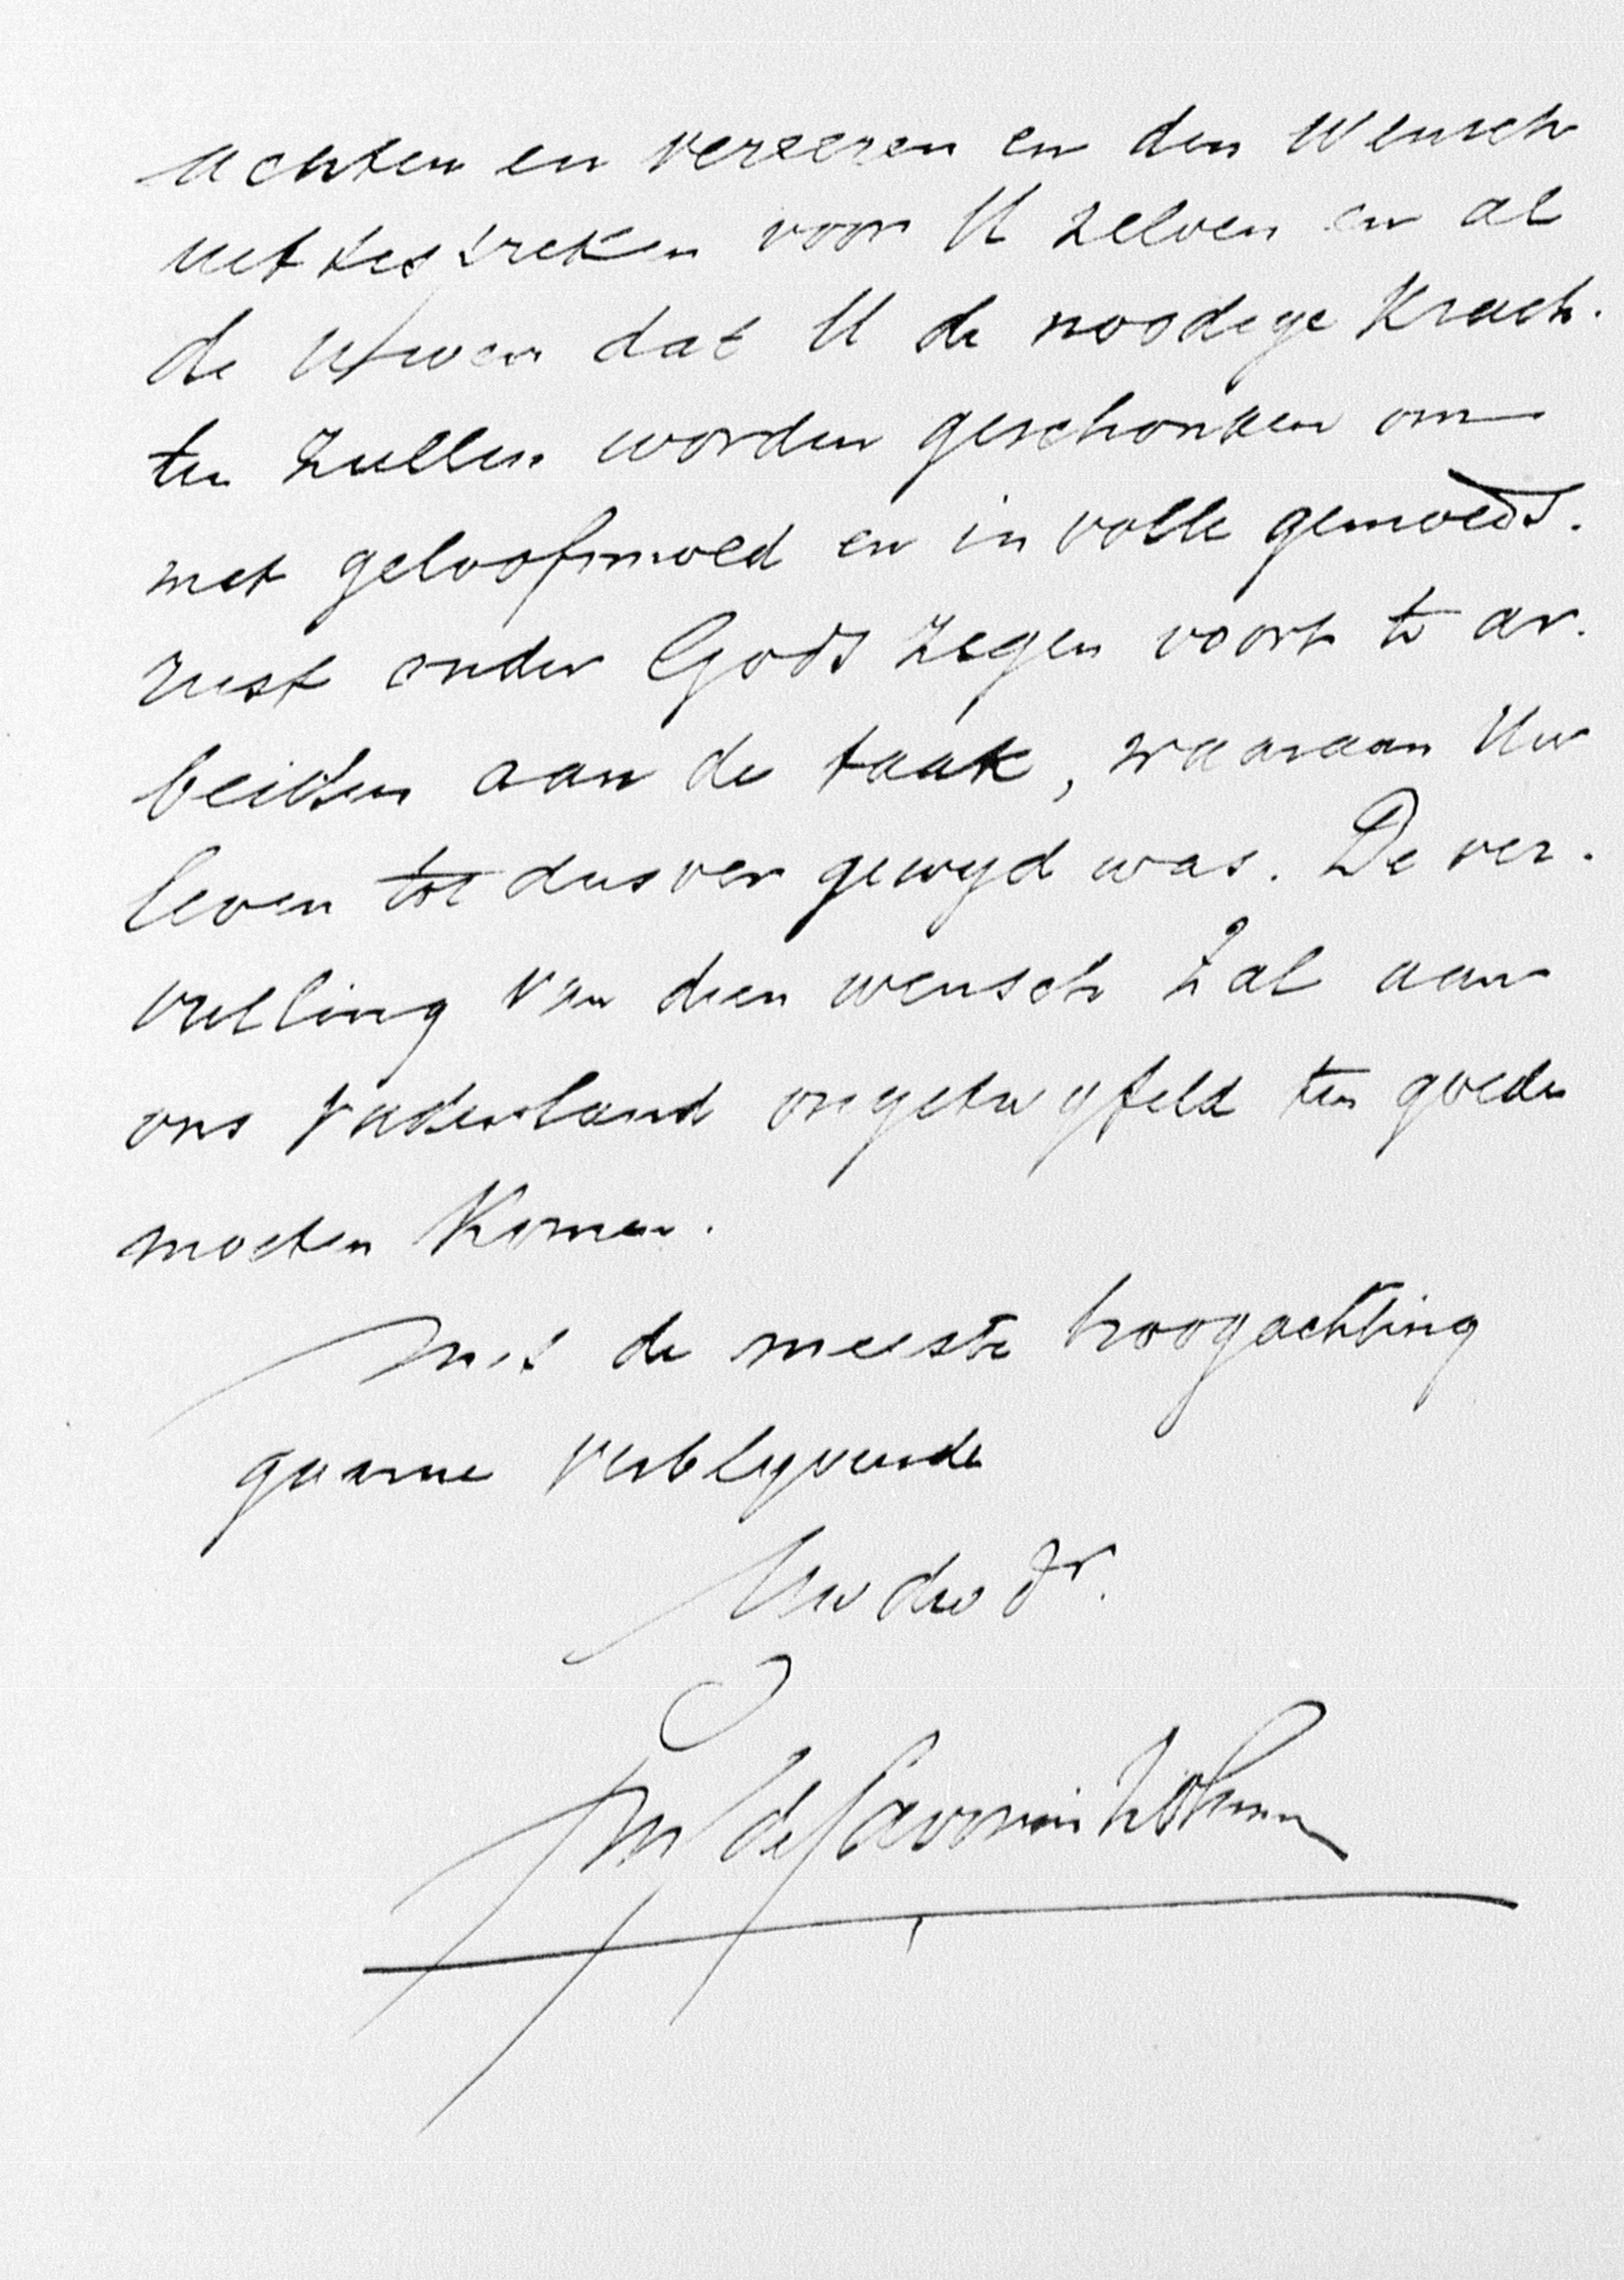 achten en vereeren en den wensch
uittespreken voor U zelven en al
de Uwen dat U de noodige krach-
ten zullen worden geschonken om
met geloofsmoed en in volle gemoeds-
rust onder Gods zegen voort te ar-
beiden aan de taak, waaraan Uw
leven tot dusver gewyd was. De ver-
vulling van dien wensch zal aan
ons vaderland ongetwyfeld ten goede
moeten komen.
Met de meeste hoogachting
gaarne verblyvende
Uw dw dr.
de Savornin Lohman